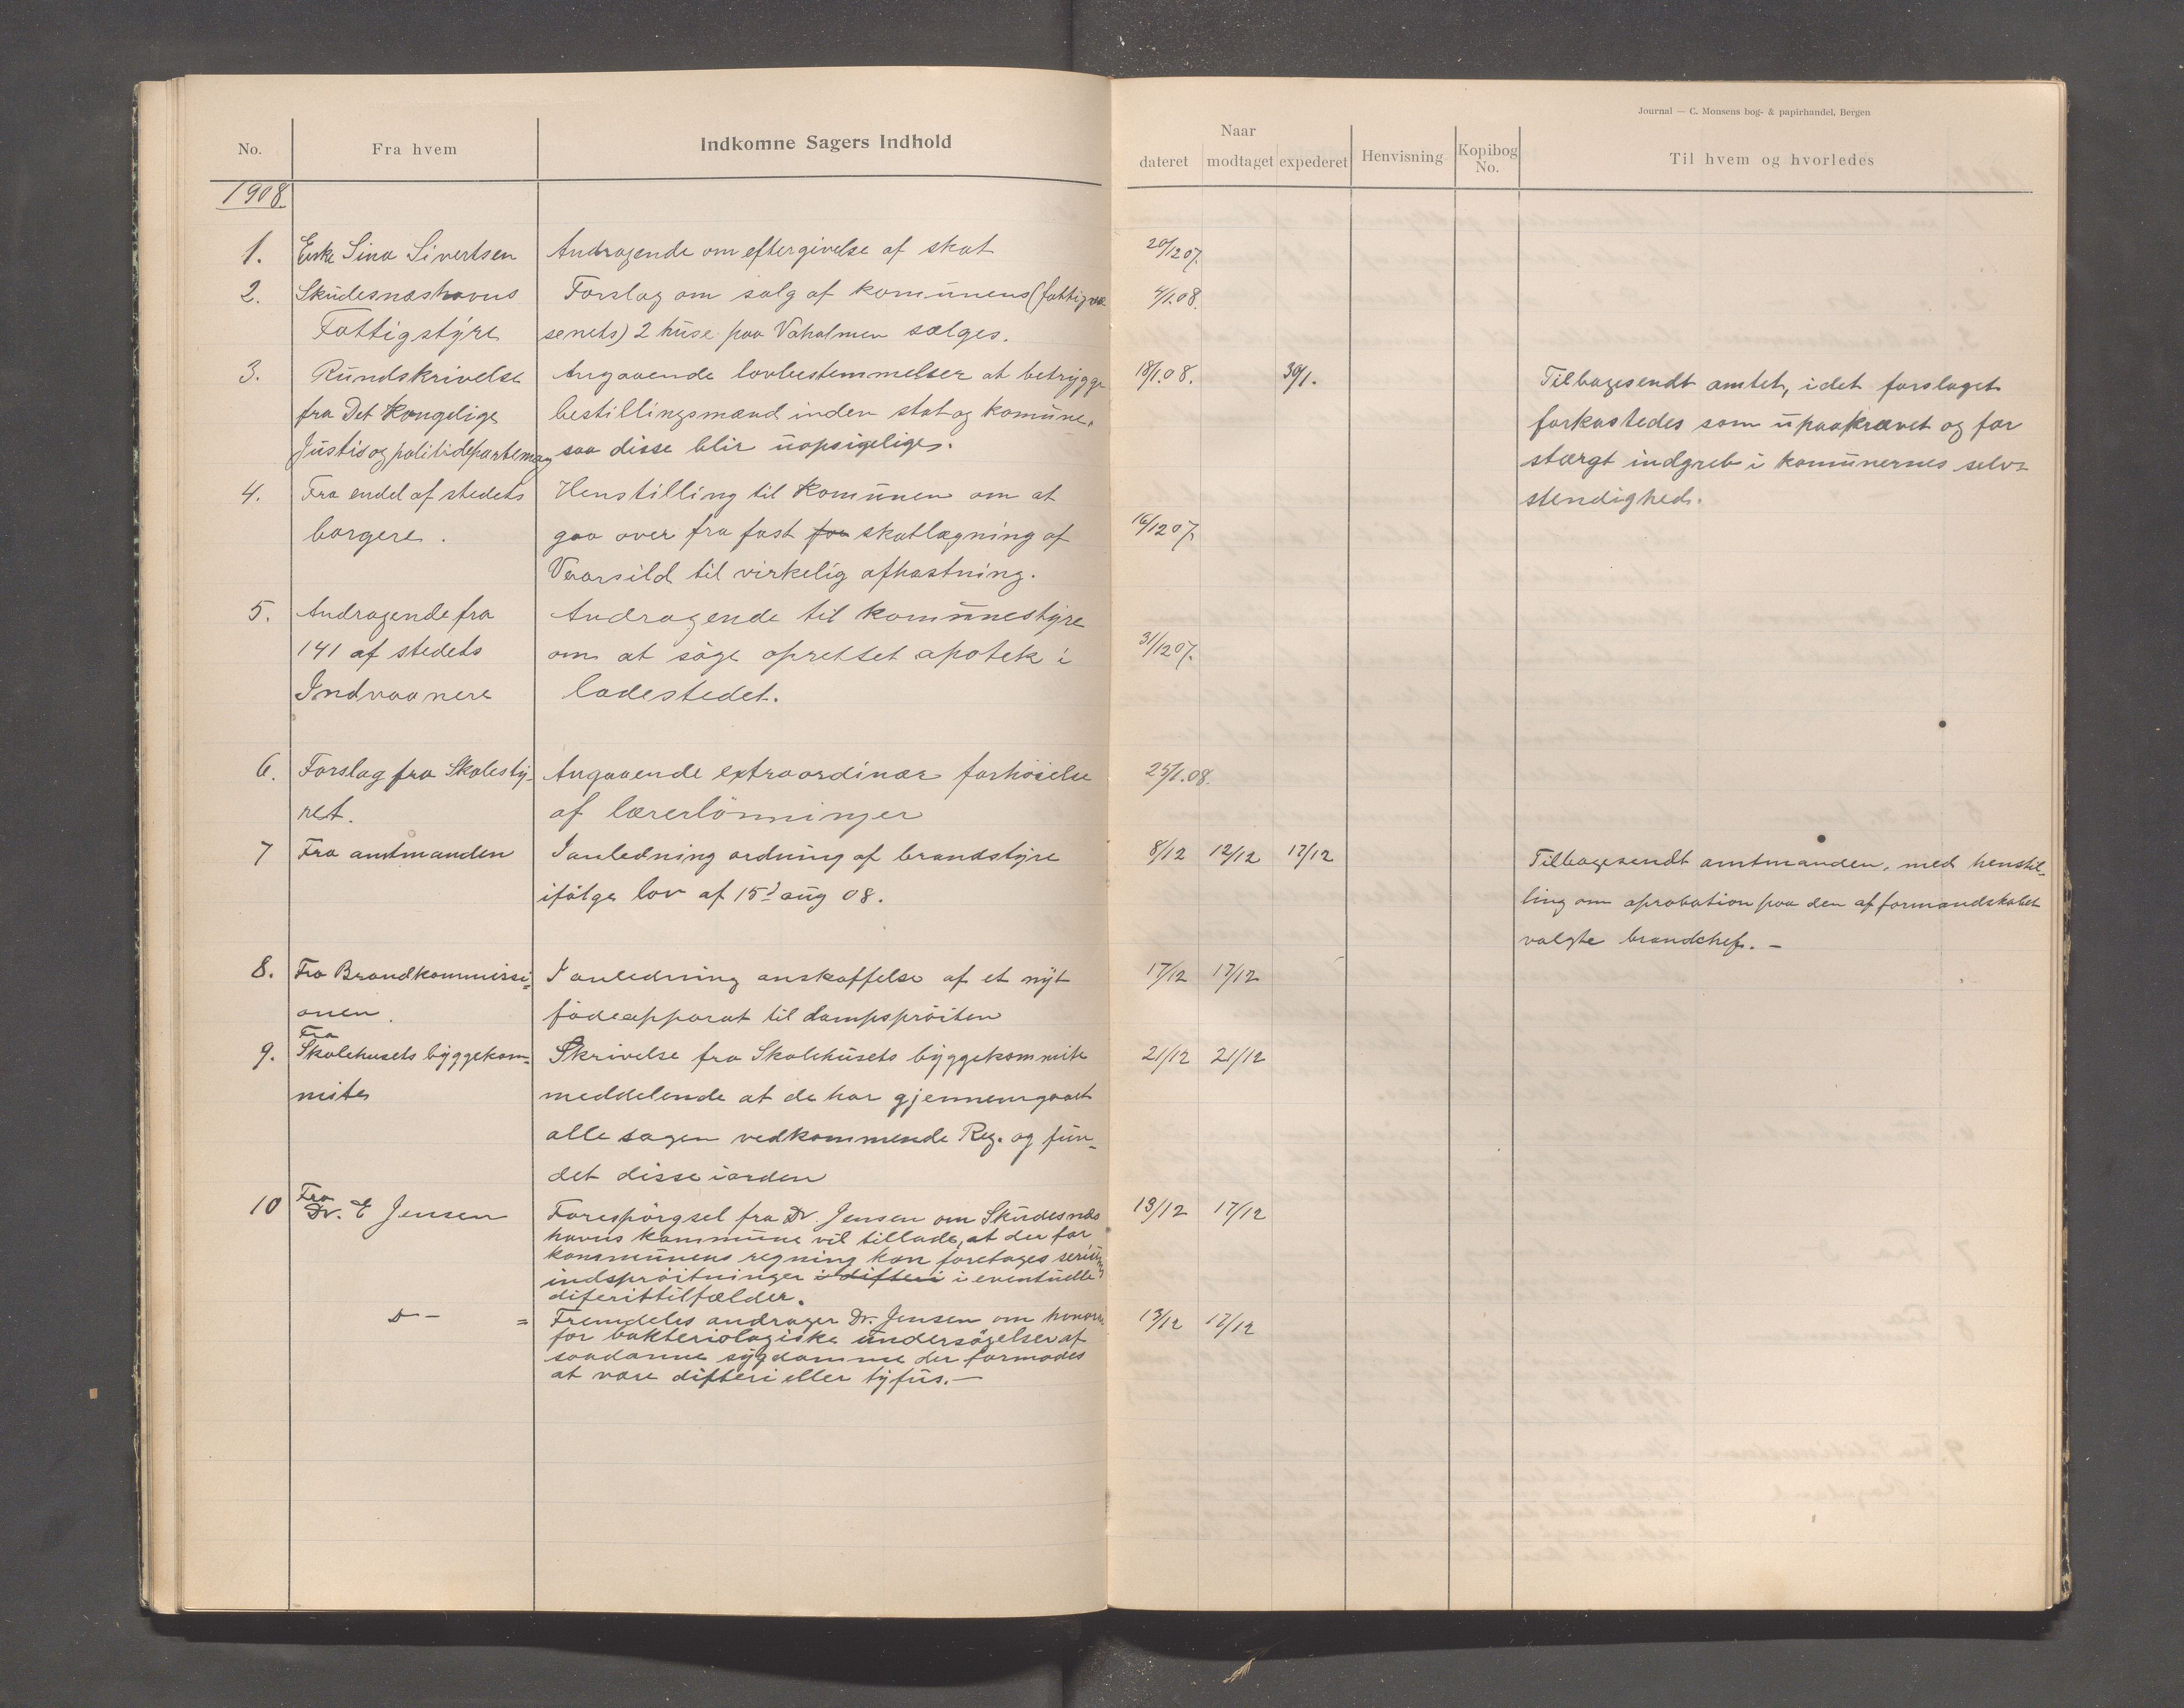 Journal — C. Monsens bog- & papirhandel, Bergen
No.
Fra hvem
Indkomne Sagers Indhold
Naar
dateret modtaget expederet
Henvisning
Kopibog
No.
Til hvem og hvorledes
1908.
1. Enke Sina Sivertsen Andragende om eftergivelse af skat 20/12 07.
2. Skudesneshavns Forslag om salg af komunens (fattigvæ 4/1.08.
Fattigstyre senets) 2 huse paa Vaholmen sælges.
3. Rundskrivelse Angaaende lovbestemmelser at betrygge 18/1.08. 30/1. Tilbagesendt amtet, idet forslaget
fra Det Kongelige bestillingsmænd inden stat og komune. forkastedes som upaakrævet og for
Justis og politidepartement saa disse blir uopsigelige. stærgt indgreb i komunernes selv-
4. Fra endel af stedets Henstilling til Komunen om at stendighed.
borgere. gaa over fra fast for skatlægning af 16/12 07.
Vaarsild til virkelig afkastning.
5. Andragende fra Andragende til komunestyre
141 af stedets om at søge oprettet apotek i 31/12 07.
Indvaanere ladestedet.
6. Forslag fra Skolesty- Angaaende extraordinær forhøielse 25/1.08.
ret. af lærerlønninger
7 Fra amtmanden I anledning ordning af brandstyre 8/12 12/12 17/12 Tilbagesendt amtmanden, med henstil-
ifølge lov af 15d aug 08. ling om aprobation paa den af formandskabet
valgte brandchef. —
8. Fra Brandkommissi= I anledning anskaffelse af et nyt 17/12 17/12
onen. fødeapparat til dampsprøiten
9. Fra Skolehusets byggekom= Skrivelse fra Skolehusets byggekommite 21/12 21/12
mite meddelende at de har gjennemgaaet
alle sagen vedkommende Reg. og fun-
det disse iorden
10 Fra Dr. E Jensen Forespørgsel fra Dr. Jensen om Skudesnes 13/12 17/12
havns kommune vil tillade, at der for
kommunens regning kan foretages serum
indsprøitninger i difteri i eventuelle
diferittilfælder.
D— = Fremdeles andrager Dr. Jensen om honorar 13/12 17/12
for bakteriologiske undersøgelser af
saadanne sygdomme der formodes
at være difteri eller tyfus. —